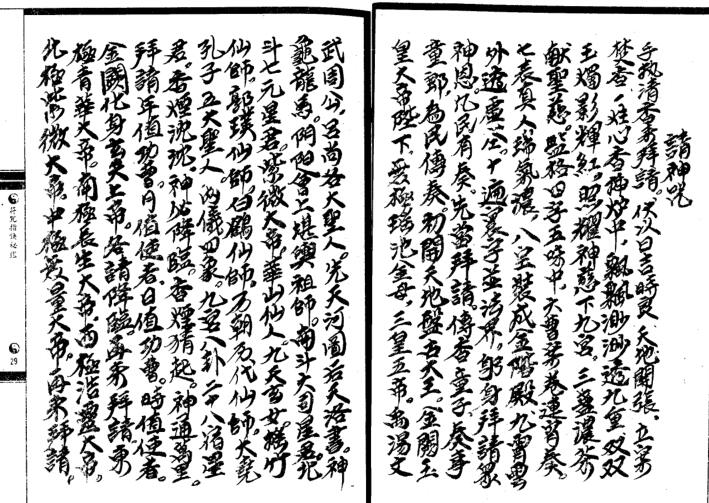 請神咒
手执清香来拜請。伏以日吉時良。天地開張。立案
焚香。一炷心香神炉中，飄飄渺渺透九重。双双
玉燭影輝紅。照耀神慈下九宮。三盞濃茶
献聖慈。
七表真人瑞氣濃，八宝裝成金階殿。九霄雲
外透虛空。十遍裏字並法界。躬身拜請眾
神恩。凡民有奏。先當拜請。傳香童子。奏事
童郎。為民傳奏。初開天地盤古大王。金闕玉
皇大帝陛下。無極瑤池金母，三皇五帝。禹湯文
武周公。呂尚各大聖人。先天河圖后天洛書。神
龜龍馬。阴阳會上堪輿祖師。南斗六司星君。北
斗七元星君。紫微大帝。華山仙人。九天玄女。楊竹
仙師。郭璞仙師。白鶴仙師。万朝历代仙師。大堯
孔子五大聖人。兩儀四象。九宮八卦。二十八宿星
君。香煙沉沉。神必降臨。香煙猜起。神通萬里。
拜請年值功曹。月值使者。日值功曹。時值使者。
金闕化身玄天上帝。各請降臨。再来拜請。東
極青華大帝。南極長生大帝。西極浩靈大帝。
北極紫微大帝。中極 量大帝。再来拜請。
符咒指訣秘鑑
29